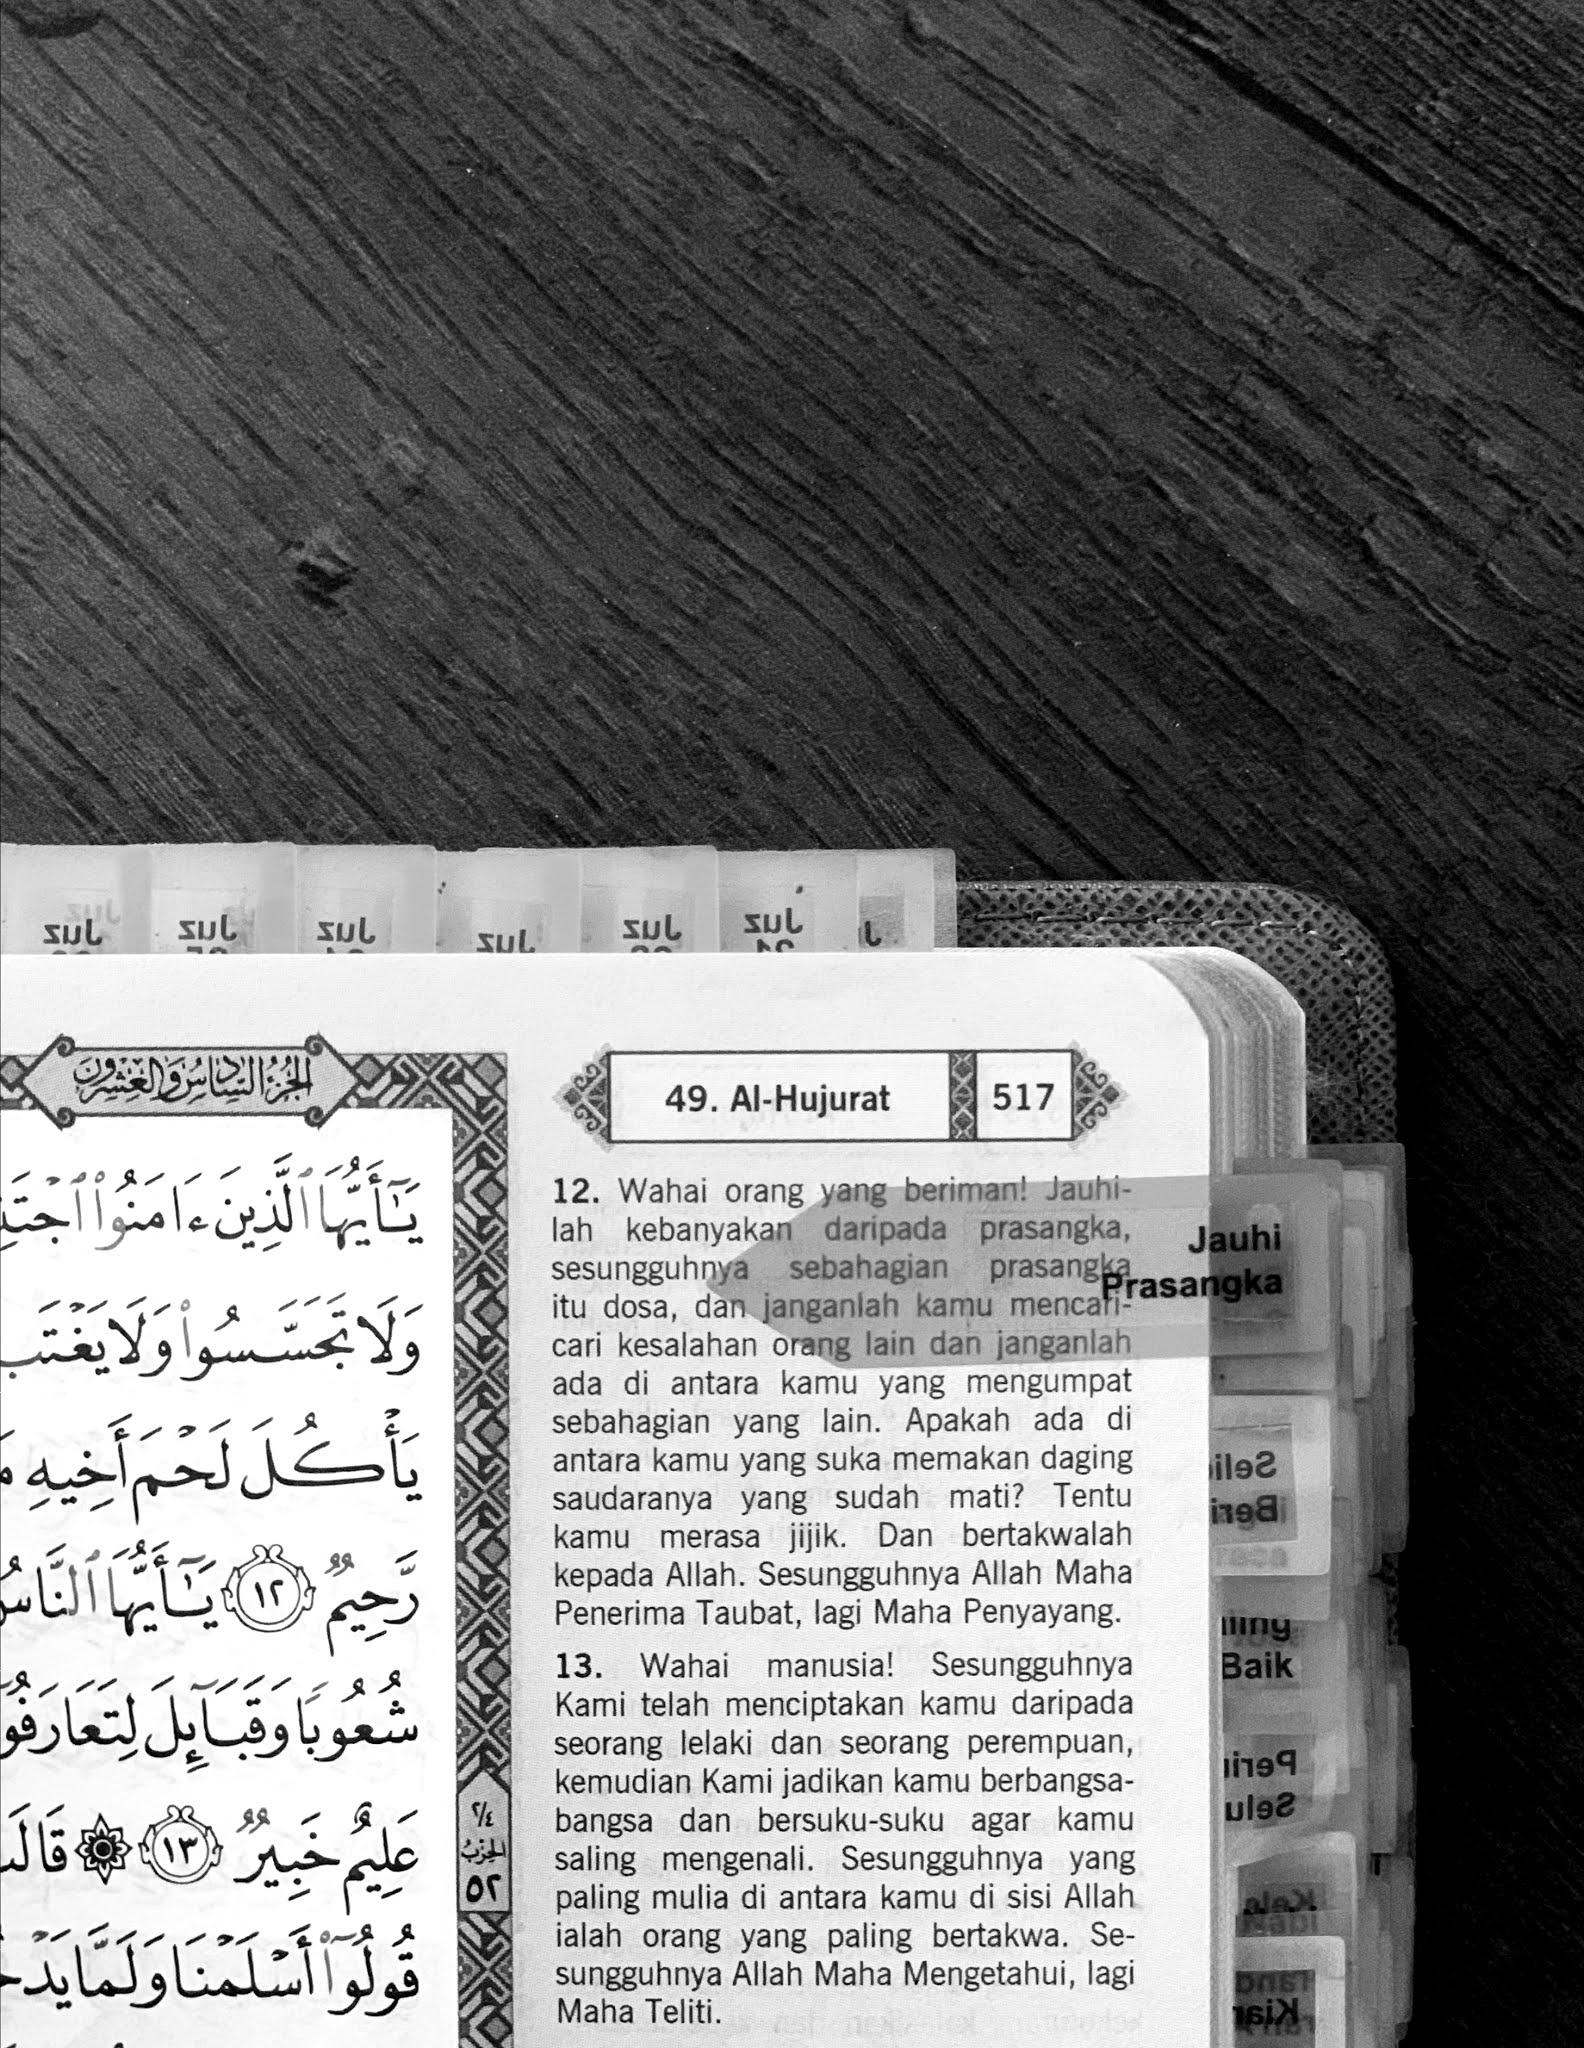 Juz
Juz
Juz
Juz
Juz
Juz
الجزء السادس والعشرون
49. Al-Hujurat
517
يَـٰٓأَيُّهَا ٱلَّذِينَ ءَامَنُوا۟
وَلَا تَجَسَّسُوا۟ وَلَا يَغْتَب
يَأْكُلَ لَحْمَ أَخِيهِ
رَّحِيمٌ ١٢ يَـٰٓأَيُّهَا ٱلنَّاسُ
شُعُوبًا وَقَبَآئِلَ
عَلِيمٌ خَبِيرٌ ١٣
قُولُوٓا۟ أَسْلَمْنَا وَلَمَّا
٢/٤
الحزب
٥٢
12. Wahai orang yang beriman! Jauhi-
lah kebanyakan daripada prasangka,
sesungguhnya sebahagian prasangka
itu dosa, dan janganlah kamu mencari-
cari kesalahan orang lain dan janganlah
ada di antara kamu yang mengumpat
sebahagian yang lain. Apakah ada di
antara kamu yang suka memakan daging
saudaranya yang sudah mati? Tentu
kamu merasa jijik. Dan bertakwalah
kepada Allah. Sesungguhnya Allah Maha
Penerima Taubat, lagi Maha Penyayang.
13. Wahai manusia! Sesungguhnya
Kami telah menciptakan kamu daripada
seorang lelaki dan seorang perempuan,
kemudian Kami jadikan kamu berbangsa-
bangsa dan bersuku-suku agar kamu
saling mengenali. Sesungguhnya yang
paling mulia di antara kamu di sisi Allah
ialah orang yang paling bertakwa. Se-
sungguhnya Allah Maha Mengetahui, lagi
Maha Teliti.
Jauhi
Prasangka
Baik